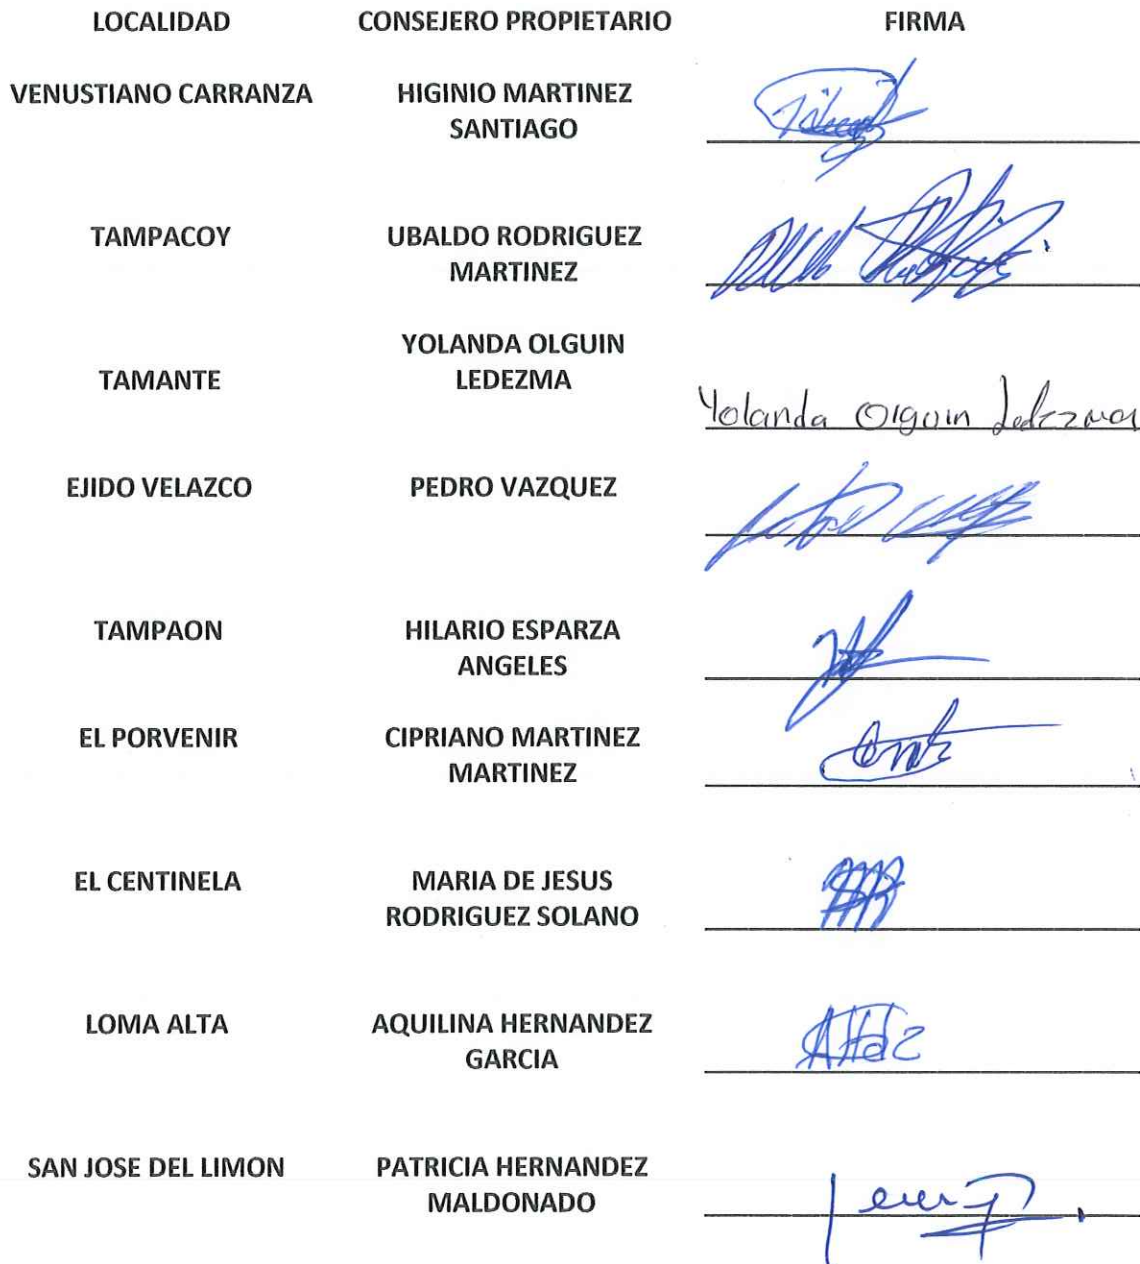 LOCALIDAD CONSEJERO PROPIETARIO FIRMA
VENUSTIANO CARRANZA HIGINIO MARTINEZ
SANTIAGO
TAMPACOY UBALDO RODRIGUEZ
MARTINEZ
YOLANDA OLGUIN
TAMANTE LEDEZMA
Yolanda Olguin Ledezma
EJIDO VELAZCO PEDRO VAZQUEZ
TAMPAON HILARIO ESPARZA
ANGELES
EL PORVENIR CIPRIANO MARTINEZ
MARTINEZ
EL CENTINELA MARIA DE JESUS
RODRIGUEZ SOLANO
LOMA ALTA AQUILINA HERNANDEZ
GARCIA
SAN JOSE DEL LIMON PATRICIA HERNANDEZ
MALDONADO